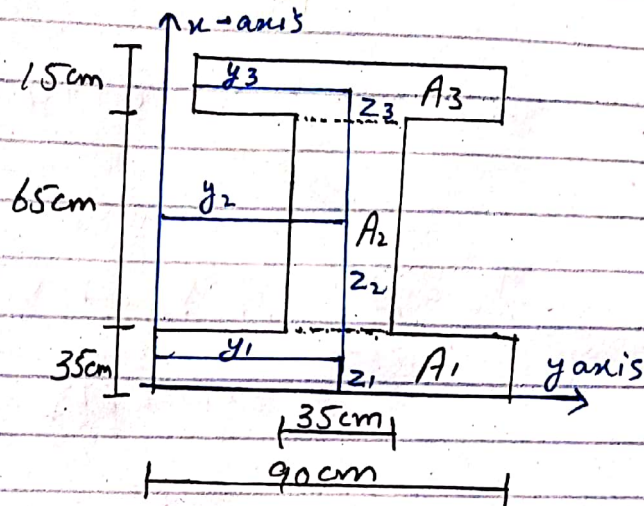 x-axis
15cm
y3
A3
z3
65cm
y2
A2
z2
35cm
y1
A1
z1
y axis
35cm
90cm